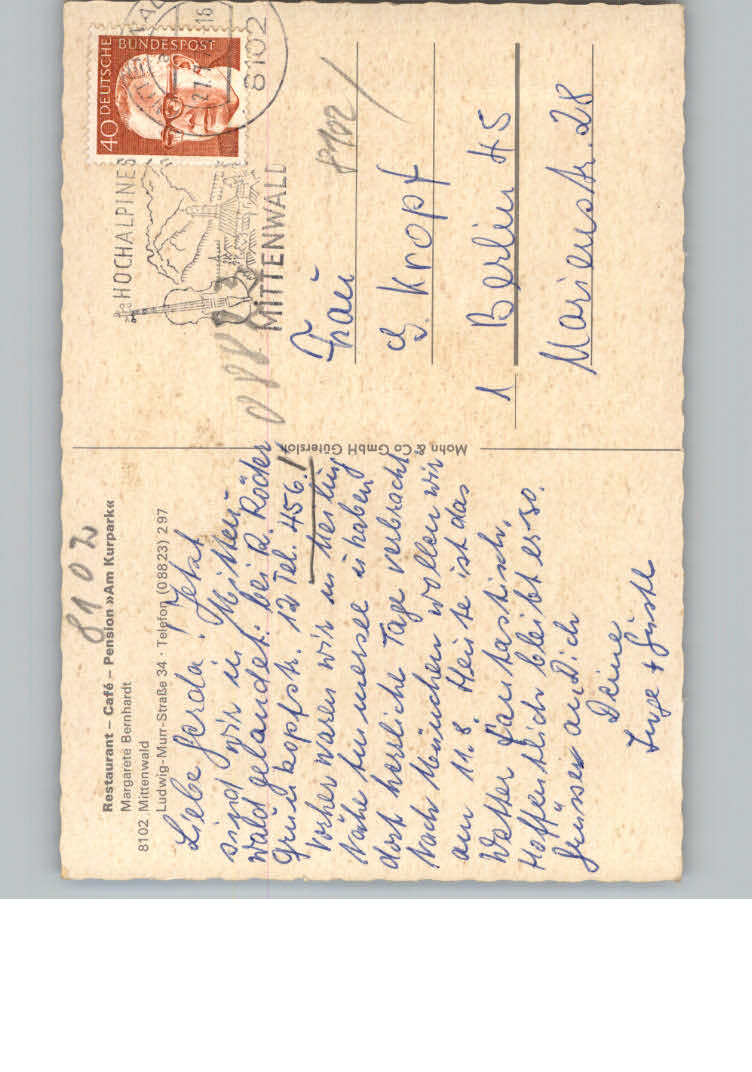 8102
Restaurant – Café – Pension »Am Kurpark«
Margarete Bernhardt
8102 Mittenwald
Ludwig-Murr-Straße 34 · Telefon (08823) 297
Liebe Gerda! Jetzt
sind wir in Mitten-
wald gelandet. bei R. Röder
Grünkopfstr. 12 Tel. 456.!
Vorher waren wir in
Nähe Ammersee u haben
dort herrliche Tage verbracht
Nach München wollen wir
am 11.8. Heute ist das
Wetter fantastisch,
Hoffentlich bleibt es so.
Grüssen an Dich
Deine
Inge + Gustl
Mohn & Co GmbH Gütersloh
DEUTSCHE BUNDESPOST
40
8102
HOCHALPINES
MITTENWALD
088
8102
Frau
G. Kropf
1 Berlin 45
Marienstr. 28